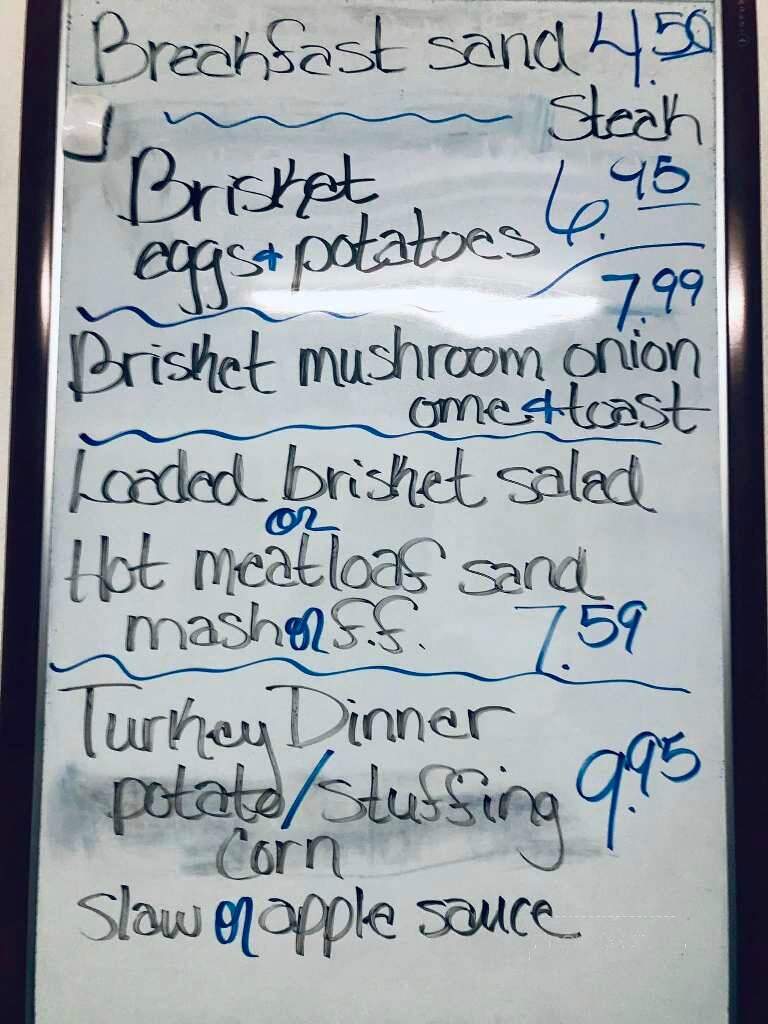 Breakfast sand 4.50
Steak
Brisket 6.95
eggs + potatoes
7.99
Brisket mushroom onion
ome + toast
Loaded brisket salad
or
Hot meatloaf sand
mash or f.f. 7.59
Turkey Dinner
potato/stuffing 9.95
corn
Slaw or apple sauce